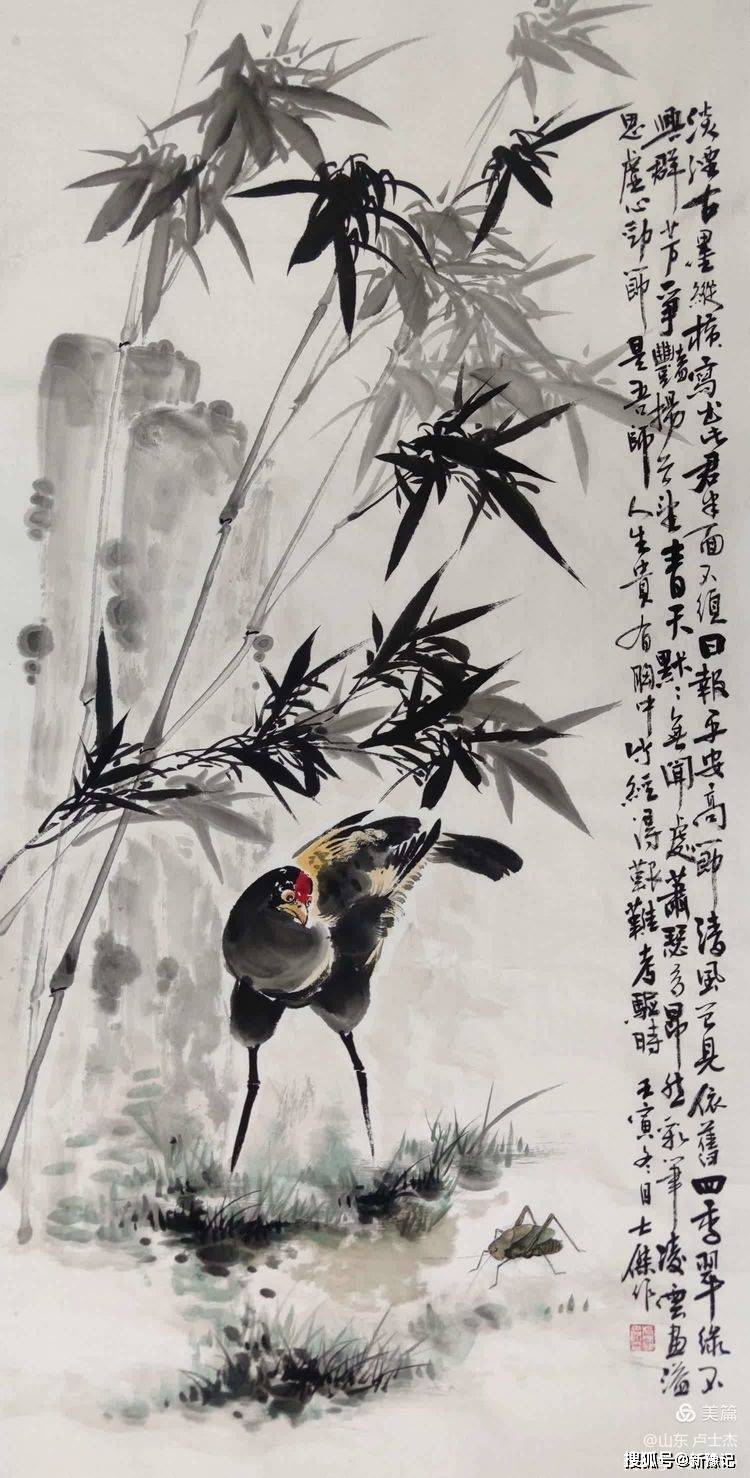 淡湮古墨縱横寫出此君半面不須日報平安高節清風曾見依舊四季翠綠不
與群芳爭豔揚首望青天默:無聞處蕭瑟多昂然彩筆凌雲畫溢
思虛心勁節是吾師人生貴有胸中竹經得艱難考驅時 壬寅冬月士傑作
美篇
@山东 卢士杰
搜狐号@新豫记